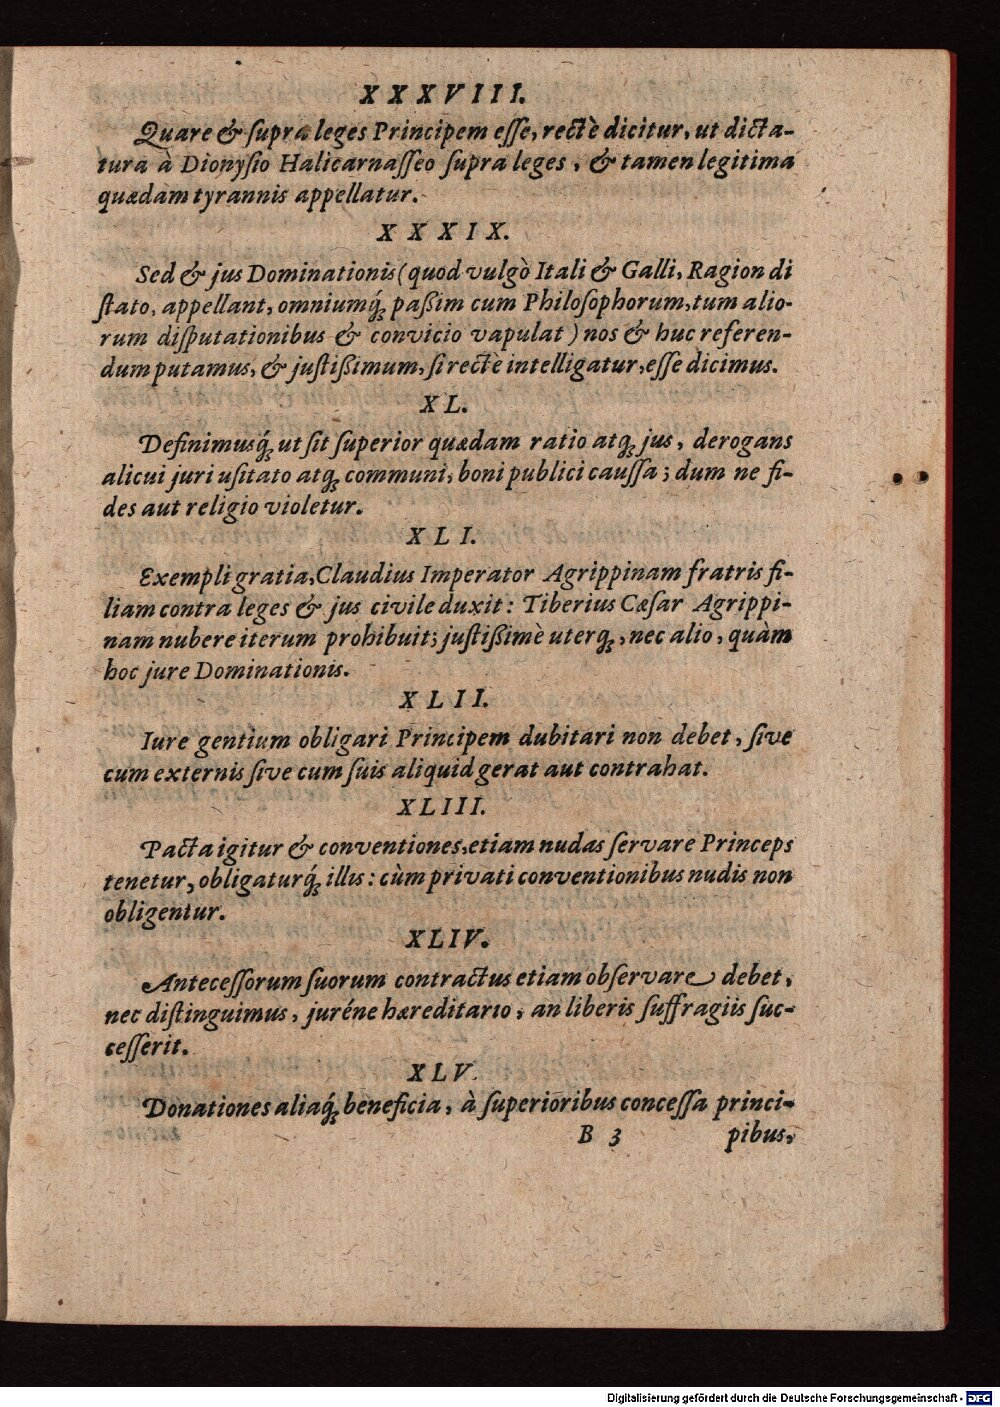 XXXVIII.
Quare & ſupra leges Principem eſſe, rectè dicitur, ut dicta-
tura à Dionyſio Halicarnaſſeo ſupra leges, & tamen legitima
quædam tyrannis appellatur.
XXXIX.
Sed & jus Dominationis (quod vulgò Itali & Galli, Ragion di
ſtato, appellant, omniumq́; paßim cum Philoſophorum, tum alio-
rum diſputationibus & convicio vapulat) nos & huc referen-
dum putamus, & juſtißimum, ſi rectè intelligatur, eſſe dicimus.
XL.
Definimusq́; ut ſit ſuperior quædam ratio atq; jus, derogans
alicui juri uſitato atq; communi, boni publici cauſſa; dum ne fi-
des aut religio violetur.
XLI.
Exempli gratia, Claudius Imperator Agrippinam fratris fi-
liam contra leges & jus civile duxit: Tiberius Cæſar Agrippi-
nam nubere iterum prohibuit; juſtißimè uterq;, nec alio, quàm
hoc jure Dominationis.
XLII.
Iure gentium obligari Principem dubitari non debet, ſive
cum externis ſive cum ſuis aliquid gerat aut contrahat.
XLIII.
Pacta igitur & conventiones, etiam nudas ſervare Princeps
tenetur, obligaturq́; illis: cùm privati conventionibus nudis non
obligentur.
XLIV.
Anteceſſorum ſuorum contractus etiam obſervare debet,
nec diſtinguimus, juréne hæreditario, an liberis ſuffragiis ſuc-
ceſſerit.
XLV.
Donationes aliaq́; beneficia, à ſuperioribus conceſſa princi-
B 3 pibus,
Digitalisierung gefördert durch die Deutsche Forschungsgemeinschaft - DFG